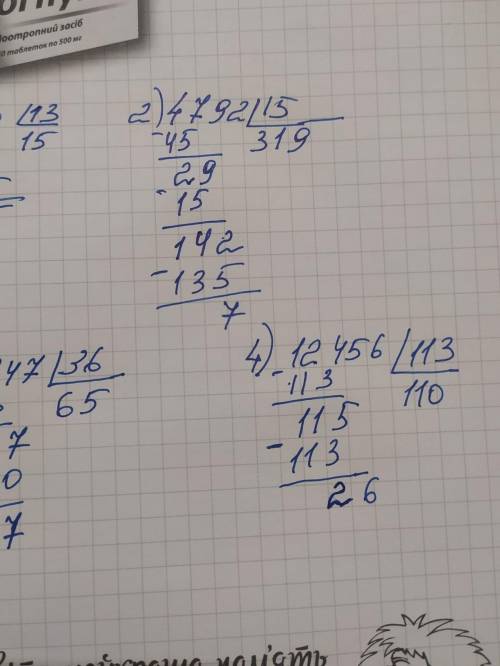 ноотропний засіб
таблеток по 500 мг
13
15
2) 4792 15
- 45 319
29
- 15
142
- 135
7
47 36
65
7
0
7
4) 12456 113
- 113 110
115
- 113
26